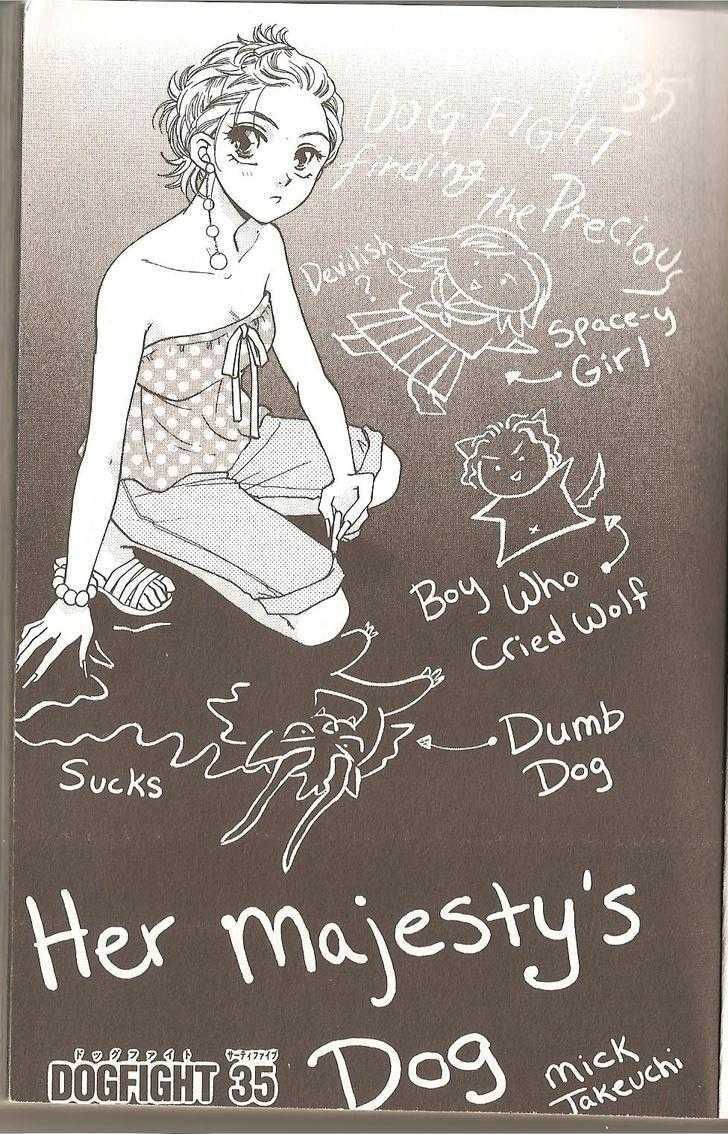 # 35
DOG FIGHT
finding
the Precious
Devilish
?
Space-y
Girl
Boy Who
Cried Wolf
Dumb
Dog
Sucks
Her Majesty's
Dog
ドッグファイト サーティファイブ
DOGFIGHT 35
mick
Takeuchi